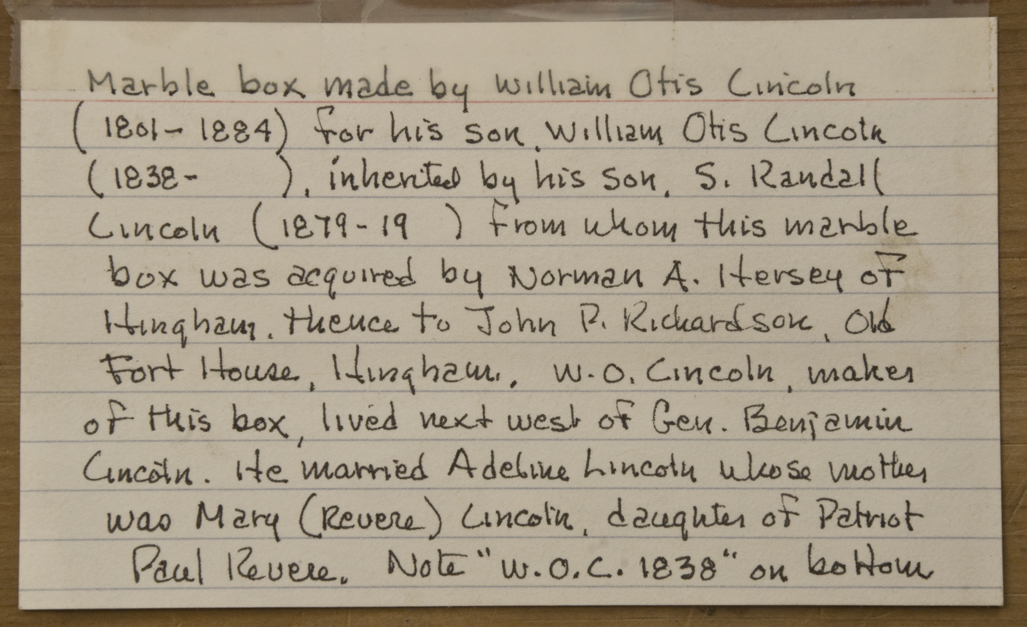 Marble box made by William Otis Lincoln
(1801-1884) for his son, William Otis Lincoln
(1838-      ), inherited by his son, S. Randall
Lincoln (1879-19   ) from whom this marble
box was acquired by Norman A. Hersey of
Hingham, thence to John P. Richardson, Old
Fort House, Hingham. W.O. Lincoln, maker
of this box, lived next west of Gen. Benjamin
Lincoln. He married Adeline Lincoln whose mother
was Mary (Revere) Lincoln, daughter of Patriot
Paul Revere. Note "W.O.L. 1838" on bottom